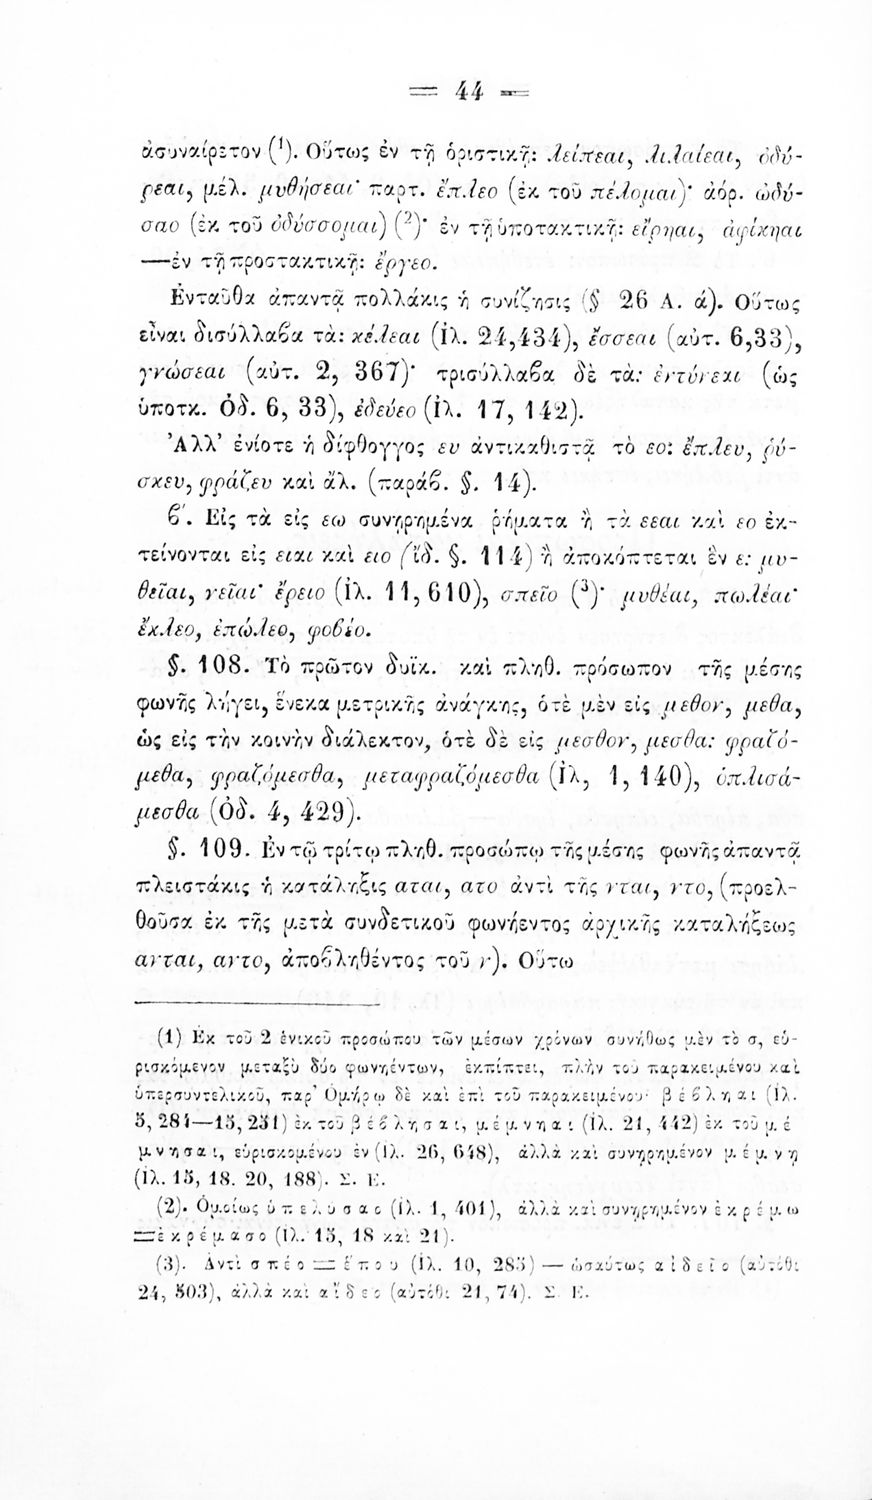 = 44 =
ἀσυναίρετον (¹). Οὕτως ἐν τῇ ὁριστικῇ: λείπεαι, λιλαίεαι, ὀδύ-
ρεαι, μέλ. μυθήσεαι· παρτ. ἔπλεο (ἐκ τοῦ πέλομαι)· ἀόρ. ὠδύ-
σαο (ἐκ τοῦ ὀδύσσομαι) (²)· ἐν τῇ ὑποτακτικῇ: εἴρηαι, ἀφίκηαι
—ἐν τῇ προστακτικῇ: ἔργεο.
Ἐνταῦθα ἀπαντᾷ πολλάκις ἡ συνίζησις (§ 26 Α. ά). Οὕτως
εἶναι δισύλλαβα τὰ: κέλεαι (Ἰλ. 24,434), ἔσσεαι (αὐτ. 6,33),
γνώσεαι (αὐτ. 2, 367)· τρισύλλαβα δὲ τὰ: ἐντύνεαι (ὡς
ὑποτκ. Ὀδ. 6, 33), ἐδεύεο (Ἰλ. 17, 142).
Ἀλλ’ ἐνίοτε ἡ δίφθογγος ευ ἀντικαθιστᾷ τὸ εο: ἔπλευ, ῥύ-
σκευ, φράζευ καὶ ἄλ. (παράβ. §. 14).
β΄. Εἰς τὰ εἰς εω συνῃρημένα ῥήματα ἢ τὰ εεαι καὶ εο ἐκ-
τείνονται εἰς ειαι καὶ ειο (ἴδ. §. 114) ἢ ἀποκόπτεται ἓν ε: μυ-
θεῖαι, νεῖαι· ἔρειο (Ἰλ. 11,610), σπεῖο (³)· μυθέαι, πωλέαι·
ἔκλεο, ἐπώλεο, φοβέο.
§. 108. Τὸ πρῶτον δυϊκ. καὶ πληθ. πρόσωπον τῆς μέσης
φωνῆς λήγει, ἕνεκα μετρικῆς ἀνάγκης, ὁτὲ μὲν εἰς μεθον, μεθα,
ὡς εἰς τὴν κοινὴν διάλεκτον, ὁτὲ δὲ εἰς μεσθον, μεσθα: φραζό-
μεθα, φραζόμεσθα, μεταφραζόμεσθα (Ἰλ, 1, 140), ὁπλισά-
μεσθα (Ὀδ. 4, 429).
§. 109. Ἐν τῷ τρίτῳ πληθ. προσώπῳ τῆς μέσης φωνῆς ἀπαντᾷ
πλειστάκις ἡ κατάληξις αται, ατο ἀντὶ τῆς νται, ντο, (προελ-
θοῦσα ἐκ τῆς μετὰ συνδετικοῦ φωνήεντος ἀρχικῆς καταλήξεως
ανται, αντο, ἀποβληθέντος τοῦ ν). Οὕτω
(1) Ἐκ τοῦ 2 ἑνικοῦ προσώπου τῶν μέσων χρόνων συνήθως μὲν τὸ σ, εὑ-
ρισκόμενον μεταξὺ δύο φωνηέντων, ἐκπίπτει, πλὴν τοῦ παρακειμένου καὶ
ὑπερσυντελικοῦ, παρ’ Ὁμήρῳ δὲ καὶ ἐπὶ τοῦ παρακειμένου· βέβληαι (Ἰλ.
5, 284—13, 251) ἐκ τοῦ βέβλησαι, μέμνηαι (Ἰλ. 21, 442) ἐκ τοῦ μέ
μνησαι, εὑρισκομένου ἐν (Ἰλ. 26, 648), ἀλλὰ καὶ συνῃρημένον μέμνῃ
(Ἰλ. 15, 18. 20, 188). Σ. Ε.
(2). Ὁμοίως ὑπελύσαο (Ἰλ. 1, 401), ἀλλὰ καὶ συνῃρημένον ἐκρέμω
=ἐκρέμασο (Ἰλ. 15, 18 καὶ 21).
(3). Ἀντὶ σπέο = ἕπου (Ἰλ. 10, 285) — ὡσαύτως αἰδεῖο (αὐτόθι
24, 503), ἀλλὰ καὶ αἴδεο (αὐτόθι 21, 74). Σ. Ε.